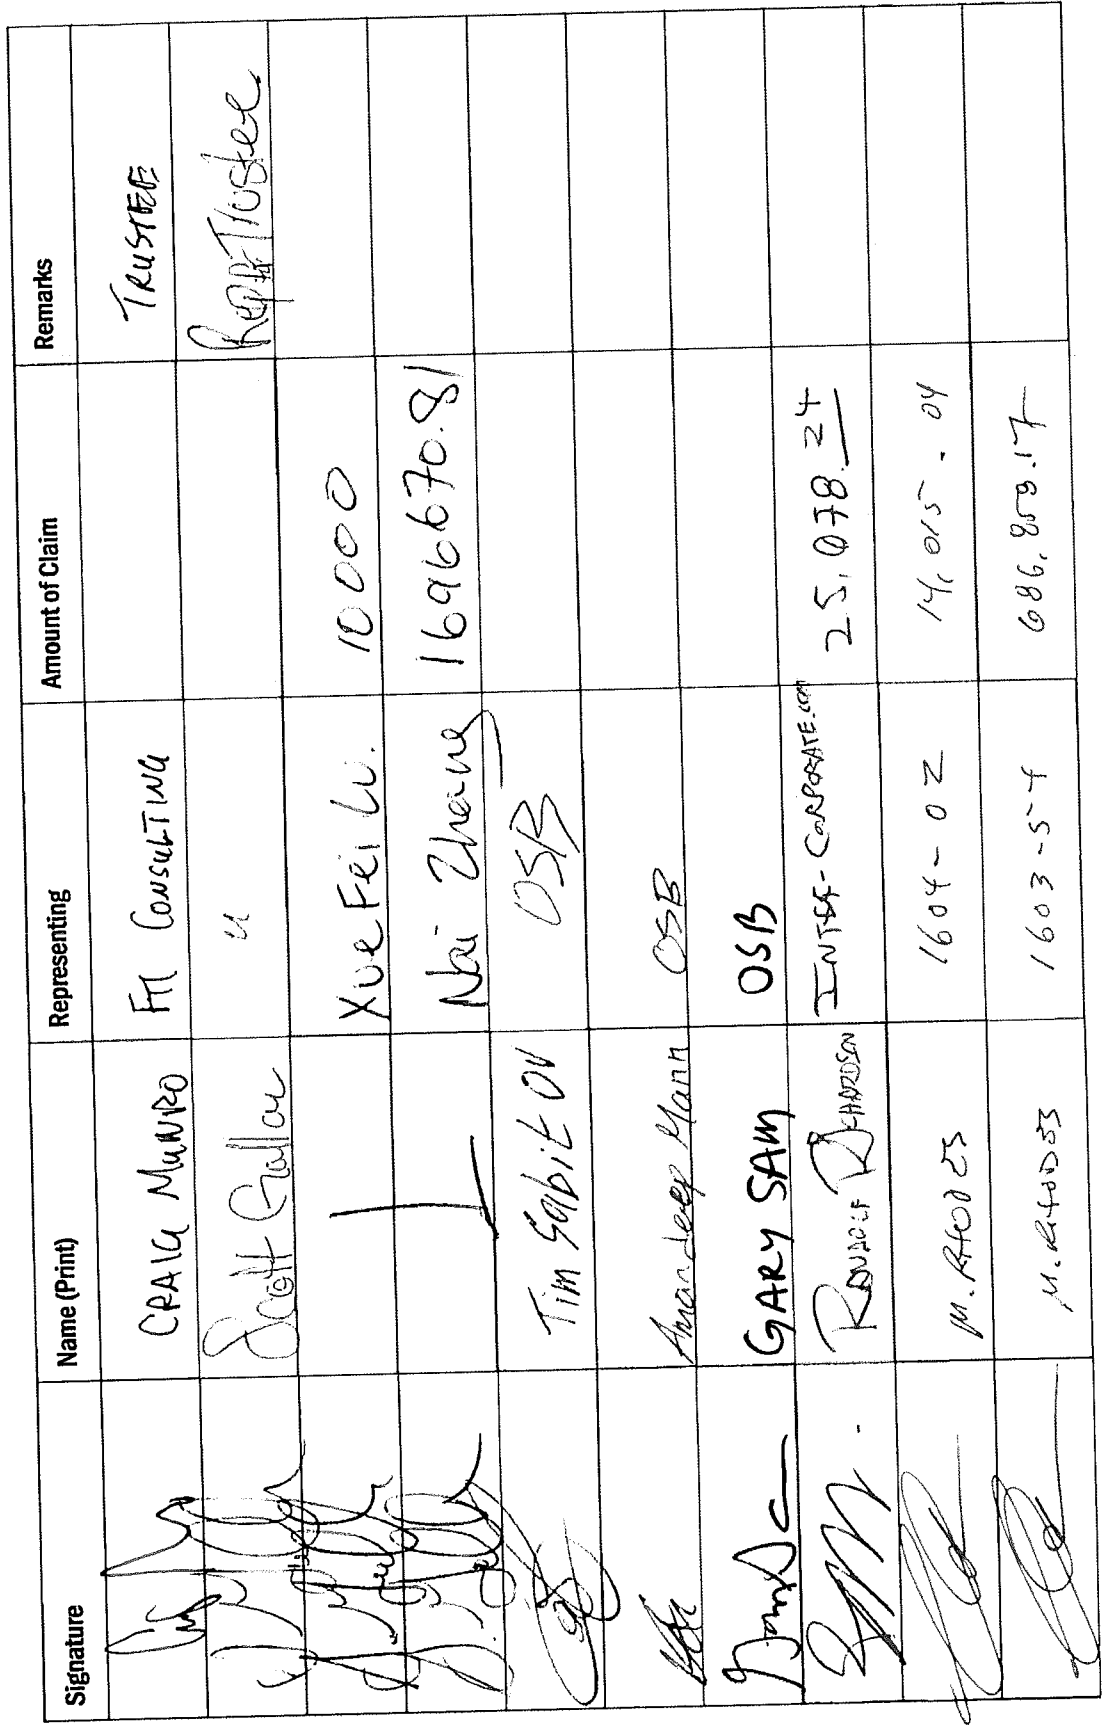 Signature Name (Print) Representing Amount of Claim Remarks
CRAIG MUNRO FTI CONSULTING TRUSTEE
Scott "
XueFei Lu. 10000
Nai Zhang 1696670.81
Tim Sabitov OSB
Amandeep Mann OSB
GARY SAM OSB
RUDOLF RICHARDSON INTER-CORPORATE.com 25,078.24
M. 1604-02 14,015.04
M. 1603-54 686,859.17